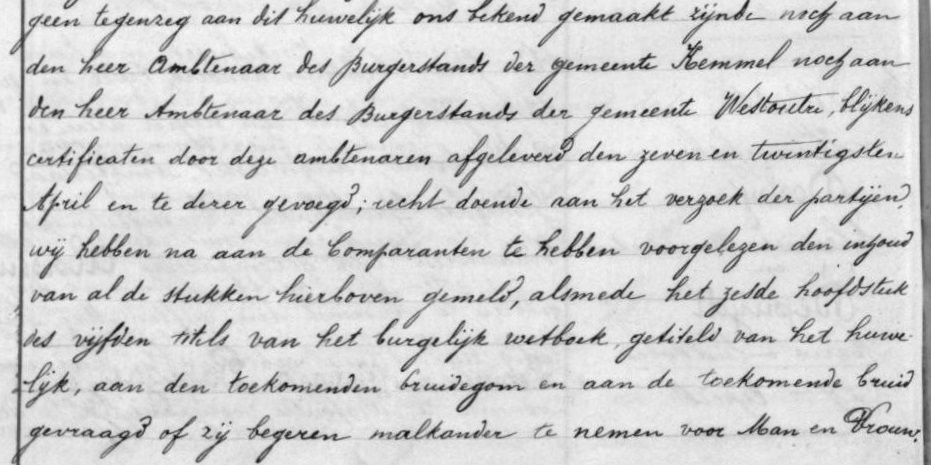 geen tegenzeg aan dit huwelijk ons bekend gemaakt zijnde noch aan
den heer Ambtenaar des Burgerstands der gemeente Kemmel noch aan
den heer Ambtenaar des Burgerstands der gemeente Westoutre, blijkens
certificaten door deze ambtenaren afgeleverd den zeven en twintigsten
April en te dezer gevoegd; recht doende aan het verzoek der partijen,
wij hebben na aan de Comparanten te hebben voorgelezen den inhoud
van al de stukken hierboven gemeld, alsmede het zesde hoofdstuk
des vijfden titels van het burgelijk wetboek, getiteld van het huwe-
lijk, aan den toekomenden bruidegom en aan de toekomende bruid
gevraagd of zij begeren malkander te nemen voor Man en Vrouw;